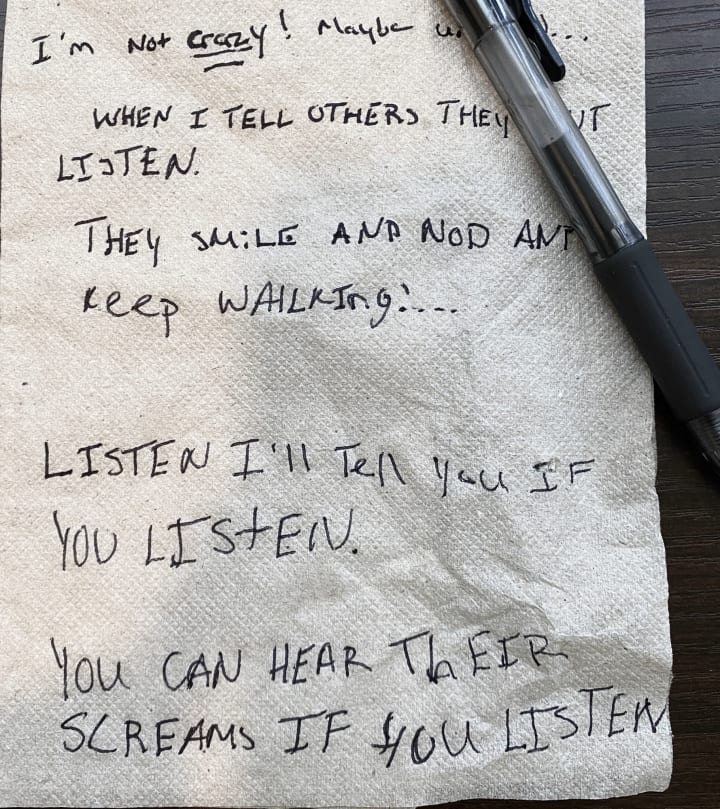 I'm Not crazy! Maybe
WHEN I TELL OTHERS THEY
LISTEN.
THEY SMiLE AND NOD AND
keep WALKIng!....
LISTEN I'll Tell you IF
YOU LIStEN.
YOU CAN HEAR ThEIR
SCREAMS IF YOU LISTEN